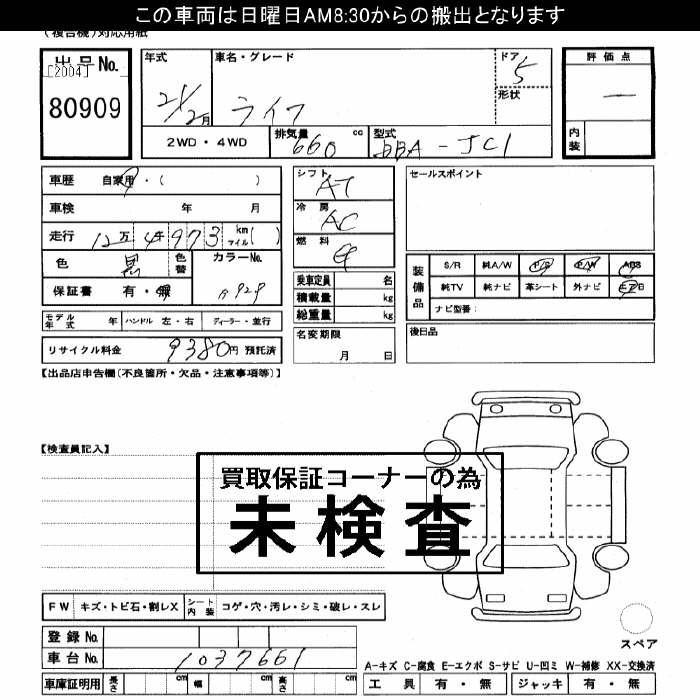 この車両は日曜日AM8:30からの搬出となります
(複合機)対応用紙
出品No.
[2004]
80909
年式
21/2月
車名・グレード
ライフ
ドア
5
形状
評価点
―
内装
2WD・4WD
排気量 660 cc
型式 DBA-JC1
車歴 自家用・( )
車検 年 月
走行 12万4千973 km マイル( )
色 黒 色替
カラーNo.
保証書 有・無
モデル年式 年 ハンドル 左・右 ディーラー・並行
リサイクル料金 9380円 預託済
シフト AT
冷房 AC
燃料
乗車定員 名
積載量 kg
総重量 kg
名変期限
月 日
セールスポイント
装備品
S/R 純A/W P/S P/W ABS
純TV 純ナビ 革シート 外ナビ エアB
ナビ型番:
後日品
【出品店申告欄(不良箇所・欠品・注意事項等)】
【検査員記入】
買取保証コーナーの為
未検査
FW キズ・トビ石・割レX シート内装 コゲ・穴・汚レ・シミ・破レ・スレ
登録No.
車台No. 1037661
車庫証明用 長さ cm 幅 cm 高さ cm
スペア
A-キズ C-腐食 E-エクボ S-サビ U-凹ミ W-補修 XX-交換済
工具 有・無 ジャッキ 有・無